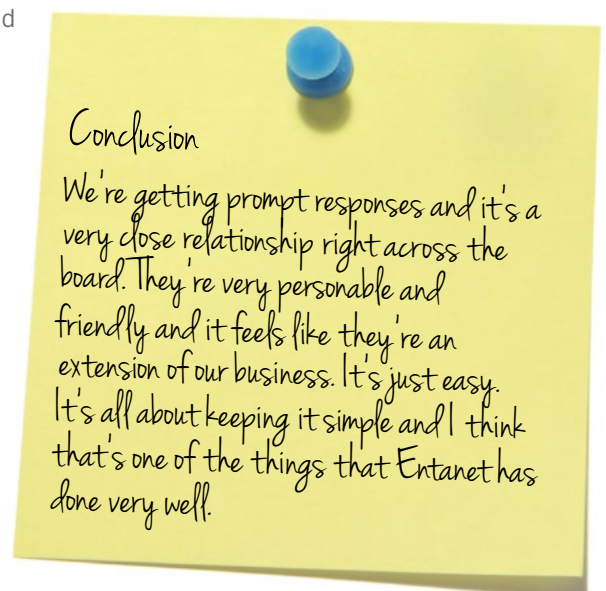 d
Conclusion
We're getting prompt responses and it's a
very close relationship right across the
board. They're very personable and
friendly and it feels like they're an
extension of our business. It's just easy.
It's all about keeping it simple and I think
that's one of the things that Entanet has
done very well.